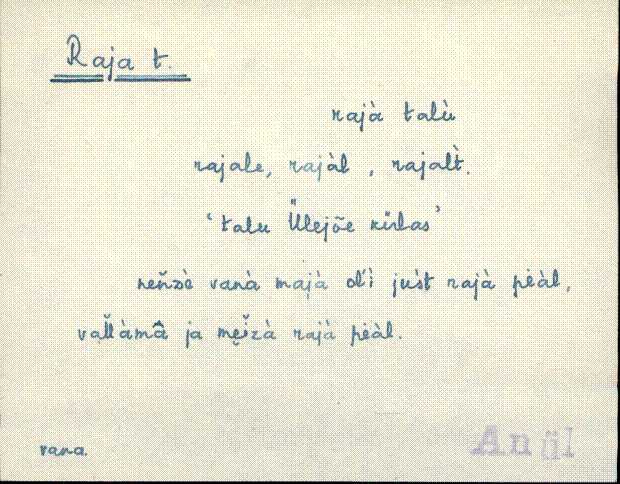 Raja t.
rajà talù
rajale, rajàl, rajalt̀.
‘talu Ülejõe külas’
neňzè vanà majà oĺì juśt rajà pèàl,
vaľľàmâ ja męizà rajà pèàl.
vana.
An ül